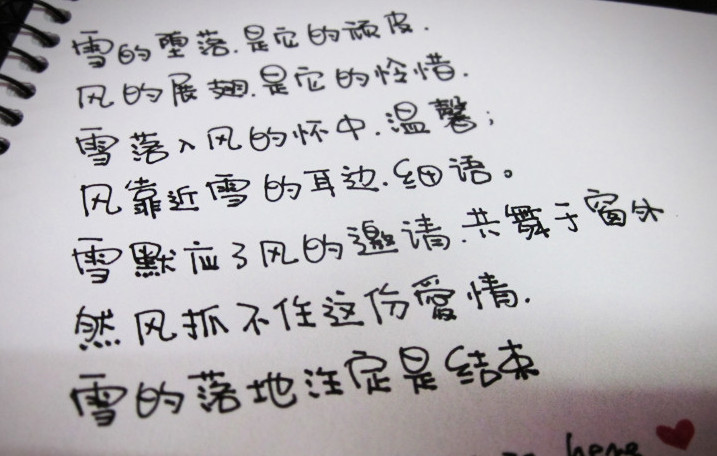 雪的堕落.是它的顽皮.
风的展翅.是它的怜惜.
雪落入风的怀中.温馨;
风靠近雪的耳边.细语。
雪默应了风的邀请.共舞于窗外
然风抓不住这份愛情.
雪的落地注定是结束
here